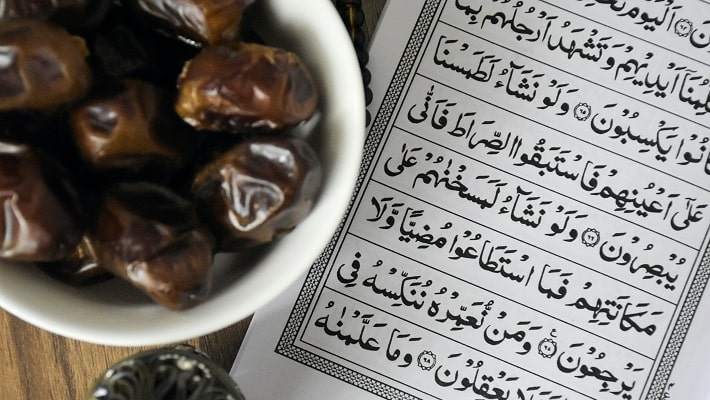 اَلْيَوْمَ
اَيْدِيْهِمْ وَتَشْهَدُ اَرْجُلُهُمْ بِمَا
كَانُوْا يَكْسِبُوْنَ ﴿٦٥﴾ وَلَوْ نَشَآءُ لَطَمَسْنَا
عَلٰٓى اَعْيُنِهِمْ فَاسْتَبَقُوا الصِّرَاطَ فَاَنّٰى
يُبْصِرُوْنَ ﴿٦٦﴾ وَلَوْ نَشَآءُ لَمَسَخْنٰهُمْ عَلٰى
مَكَانَتِهِمْ فَمَا اسْتَطَاعُوْا مُضِيًّا وَّلَا
يَرْجِعُوْنَ ﴿٦٧﴾ وَمَنْ نُّعَمِّرْهُ نُنَكِّسْهُ فِى
يَعْقِلُوْنَ ﴿٦٨﴾ وَمَا عَلَّمْنٰهُ